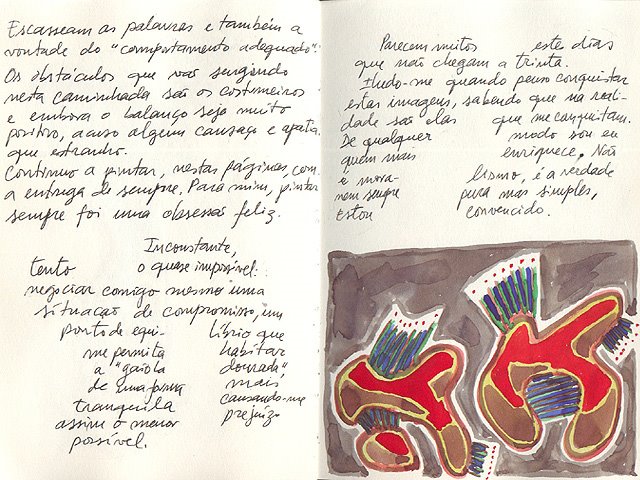 Escasseam as palavras e também a
vontade do "comportamento adequado".
Os obstáculos que vão surgindo
nesta caminhada são os costumeiros
e embora o balanço seja muito
positivo, acuso algum cansaço e apatia
que estranho.
Continuo a pintar, nestas páginas, com
a entrega de sempre. Para mim, pintar
sempre foi uma obsessão feliz.
Inconstante,
tento o quase impossível:
negociar comigo mesmo uma
situação de compromisso, um
ponto de equi- líbrio que
me permita habitar
a "gaiola dourada"
de uma forma mais
tranquila causando-me
assim o menor prejuízo
possível.
Parecem muitos este dias
que não chegam a trinta.
Iludo-me quando penso conquistar
estas imagens, sabendo que na reali-
dade são elas que me conquistam.
De qualquer modo sou eu
quem mais enriquece. Não
é mora- lismo, é a verdade
nem sempre pura mas simples,
Estou convencido.